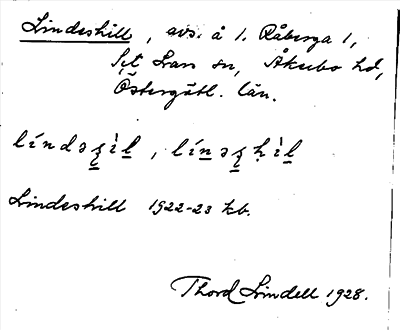 Lindeshill, avs. å 1. Råberga 1,
S:t Lars sn, Åkerbo hd,
Östergötl. län.
líndəs̠ìl̠, lín̠əs̠ḥìl̠
Lindeshill 1922-23 kb.
Thord Lindell 1928.